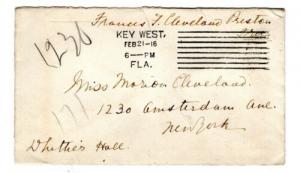 Frances F. Cleveland Preston
1230
KEY WEST,
FEB 21-16
6—PM
FLA.
Miss Marion Cleveland.
1230 Amsterdam Ave.
New York
Whittier Hall.